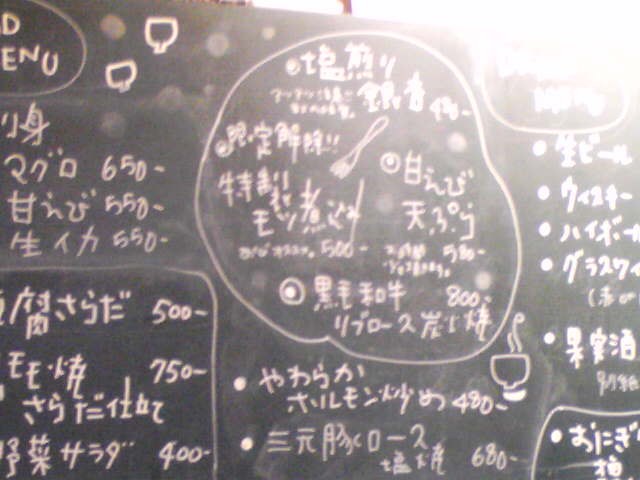 ENU
マグロ 650-
甘えび 550-
生イカ 550-
腐さらだ 500-
モモ焼 750-
さらだ仕立て
野菜サラダ 400-
塩煎り
銀杏 480-
限定解除!!
特製
モツ煮込み
500-
甘えび
天ぷら
580-
黒毛和牛 800-
リブロース炭火焼
やわらか
ホルモン炒め 480-
三元豚ロース
塩焼 680-
生ビール
ウィスキー
ハイボール
グラスワイ
果実酒
別紙
おにぎ